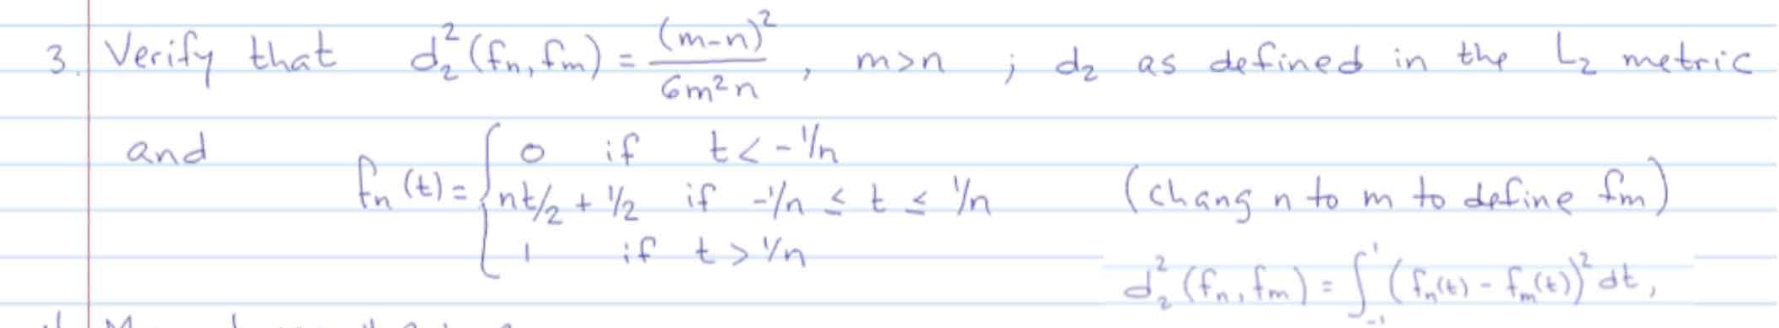 3. Verify that d₂²(fn, fm) = (m-n)²/6m²n , m>n ; d₂ as defined in the L₂ metric
and fn(t) = { 0 if t < -1/n
nt/2 + 1/2 if -1/n ≤ t ≤ 1/n (chang n to m to define fm)
1 if t > 1/n
d₂²(fn, fm) = ∫₋₁¹ (fn(t) - fm(t))² dt,